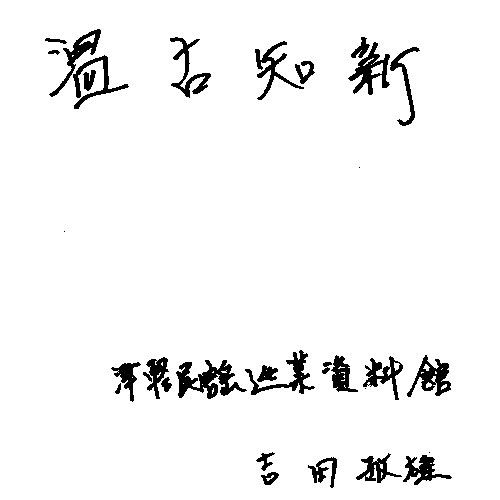 温古知新
津軽民謡巡業資料館
吉田 雄